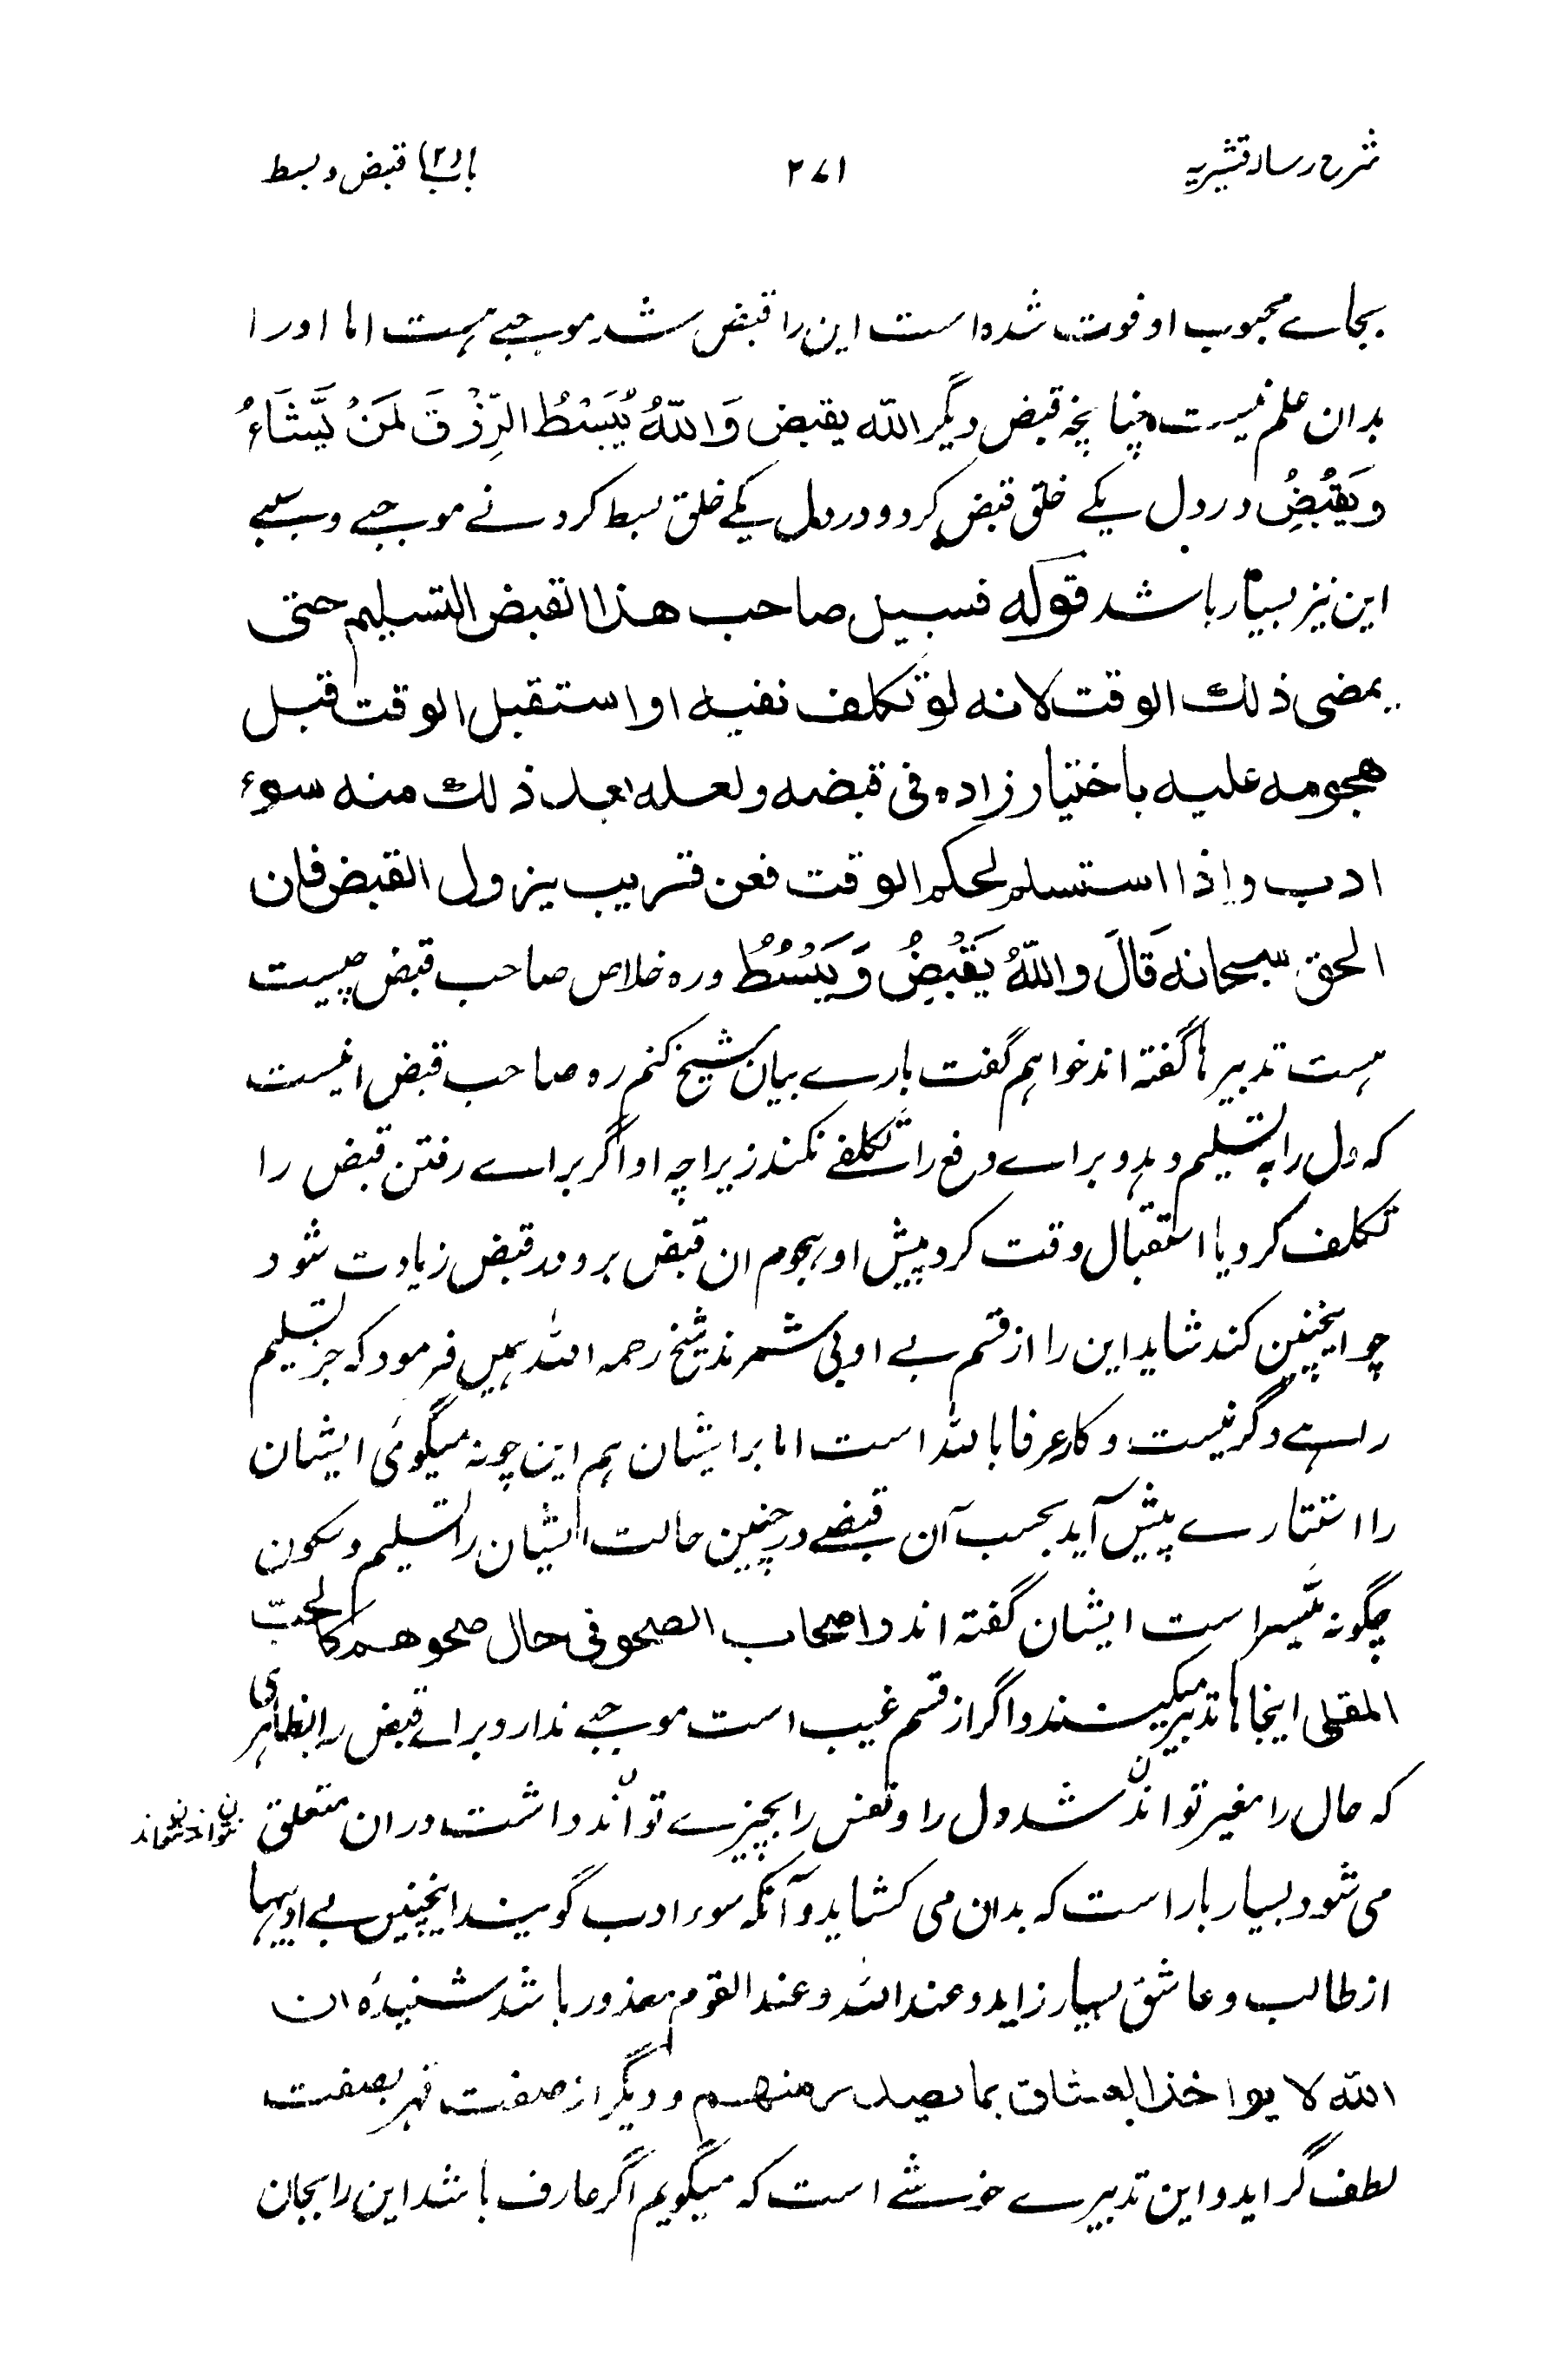 شرح رساله قشیریه ۲۷۱ باب (۲) قبض و بسط
بجاے محبوب او فوت شده است این را قبض شد موجبے هست اما او را
بدان علم نیست چنانچه قبض دیگر الله یقبض وَاللّٰهُ یَبْسُطُ الرِّزْقَ لِمَنْ یَّشَآءُ
وَیَقْبِضُ در دل یکے خلق قبض کرد و در دل یکے خلق بسط کرد نے موجبے و سببے
این نیز بسیار باشد قوله فسبیل صاحب هذا القبض التسلیم حتی
یمضی ذلك الوقت لانه لو تکلف نفیه او استقبل الوقت قبل
هجومه علیه باختیار زاده فی قبضه ولعله یعد ذلك منه سوء
ادب واذا استسلم لحکم الوقت فعن قریب یزول القبض فان
الحق سبحانه قَالَ وَاللّٰهُ یَقْبِضُ وَیَبْسُطُ وره خلاص صاحب قبض چیست
هست تدبیرها گفته اند خواهم گفت بارے بیان شیخ کنم ره صاحب قبض اینست
که دل را به تسلیم دهد و براے دفع را تکلفے نکند زیراچه او اگر براے رفتن قبض را
تکلف کرد یا استقبال وقت کرد پیش او هجوم ان قبض برو مد قبض زیادت شود
چو اینچنین کند شاید این را از قسم بے ادبی شمرند شیخ رحمه الله همیں فرمود که جز تسلیم
راهے دگر نیست و کار عرفا بالله است اما بر ایشان هم این چونه میگوئی ایشان
را استتارے پیش آید بحسب آن قبضے در چنین حالت ایشان را تسلیم و سکون
چگونه میسر است ایشان گفته اند واصحاب الصحو فی حال صحوهم کالحب
المقلی اینجاها تدبیر میکنند و اگر از قسم غیب است موجبے ندارد و براے قبض را بظاهری
که حال را مغیر تواند شد دل را و نفس را بچیزے تواند داشت دران متعلق
می شود بسیار بار است که بدان می کشاید و آنکه سوء ادب گویند اینچنیں بے ادبیها
از طالب و عاشق بسیار زاید و عند الله و عند القوم معذور باشد شنیدۀ ان
الله لا یواخذ العشاق بما یصدر منهم و دیگر از صفت قهر بصفت
لطف گراید و این تدبیرے خوشے است که میگویم اگر عارف باشد این را بجان